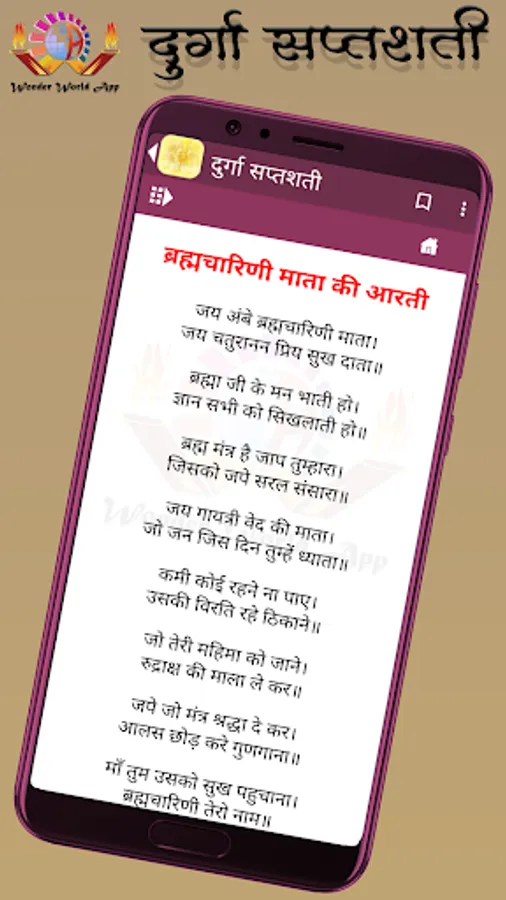 दुर्गा सप्तशती
Wonder World App
दुर्गा सप्तशती
ब्रह्मचारिणी माता की आरती
जय अंबे ब्रह्मचारिणी माता।
जय चतुरानन प्रिय सुख दाता॥
ब्रह्मा जी के मन भाती हो।
ज्ञान सभी को सिखलाती हो॥
ब्रह्म मंत्र है जाप तुम्हारा।
जिसको जपे सरल संसारा॥
जय गायत्री वेद की माता।
जो जन जिस दिन तुम्हें ध्याता॥
कमी कोई रहने ना पाए।
उसकी विरति रहे ठिकाने॥
जो तेरी महिमा को जाने।
रुद्राक्ष की माला ले कर॥
जपे जो मंत्र श्रद्धा दे कर।
आलस छोड़ करे गुणगाना॥
माँ तुम उसको सुख पहुचाना।
ब्रह्मचारिणी तेरो नाम॥
Wonder World App